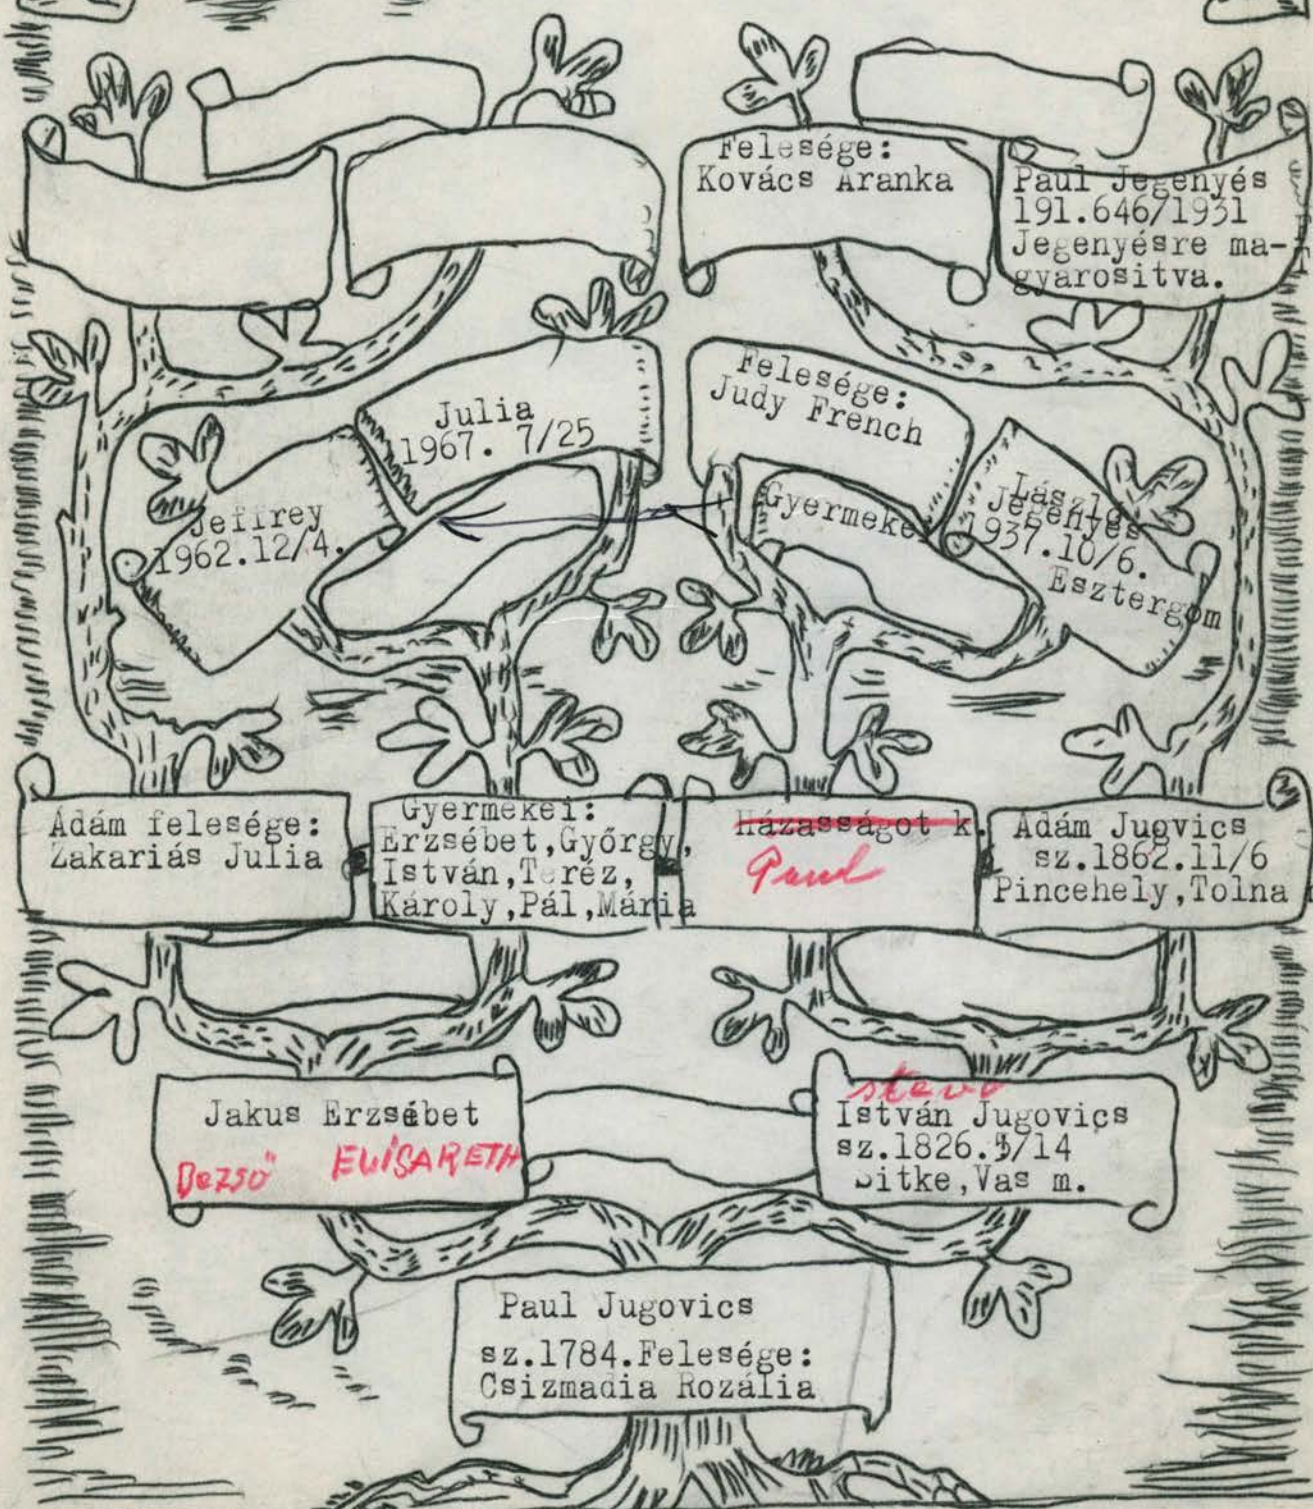 Felesége:
Kovács Aranka
Paul Jegenyés
191.646/1931
Jegenyésre ma-
gyarositva.
Julia
1967. 7/25
Felesége:
Judy French
Jeffrey
1962.12/4.
Gyermeke
László
Jegenyés
1937.10/6.
Esztergom
Ádám felesége:
Zakariás Julia
Gyermekei:
Erzsébet,Győrgy,
István,Teréz,
Károly,Pál,Mária
Házasságot k.
Paul
Ádám Jugvics
sz.1862.11/6
Pincehely,Tolna
Jakus Erzsébet
Dezső ELISABETH
stevo
István Jugovics
sz.1826. /14
Sitke,Vas m.
Paul Jugovics
sz.1784.Felesége:
Csizmadia Rozália